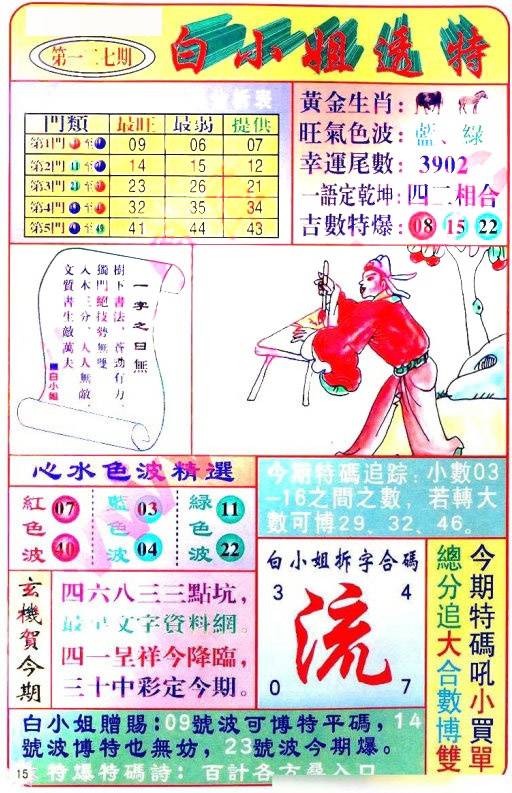 第一二七期
白小姐透特
門類 最旺 最弱 提供
第1門 至 09 06 07
第2門 11 至 14 15 12
第3門 21 至 23 26 21
第4門 至 32 35 34
第5門 至 49 41 44 43
黃金生肖：
旺氣色波：藍、綠
幸運尾數：3902
一語定乾坤：四二相合
吉數特爆：08 15 22
一字之曰無
樹下書法、蒼勁有力、
獨門絕技勢無雙
入木三分、人人無敵、
文質書生敵萬夫
白小姐
心水色波精選
紅色波 07 40
藍色波 03 04
綠色波 11 22
今期特碼追踪：小數03
-16之間之數，若轉大
數可博29、32、46。
玄機賀今期
四六八三三點坑，
文字資料網。
四一呈祥今降臨，
三十中彩定今期。
白小姐拆字合碼
3 4
流
0 7
今期特碼吼小買單
總分追大合數博雙
白小姐贈賜：09號波可博特平碼，14
號波博特也無妨，23號波今期爆。
特爆特碼詩：百計各方尋入口
15